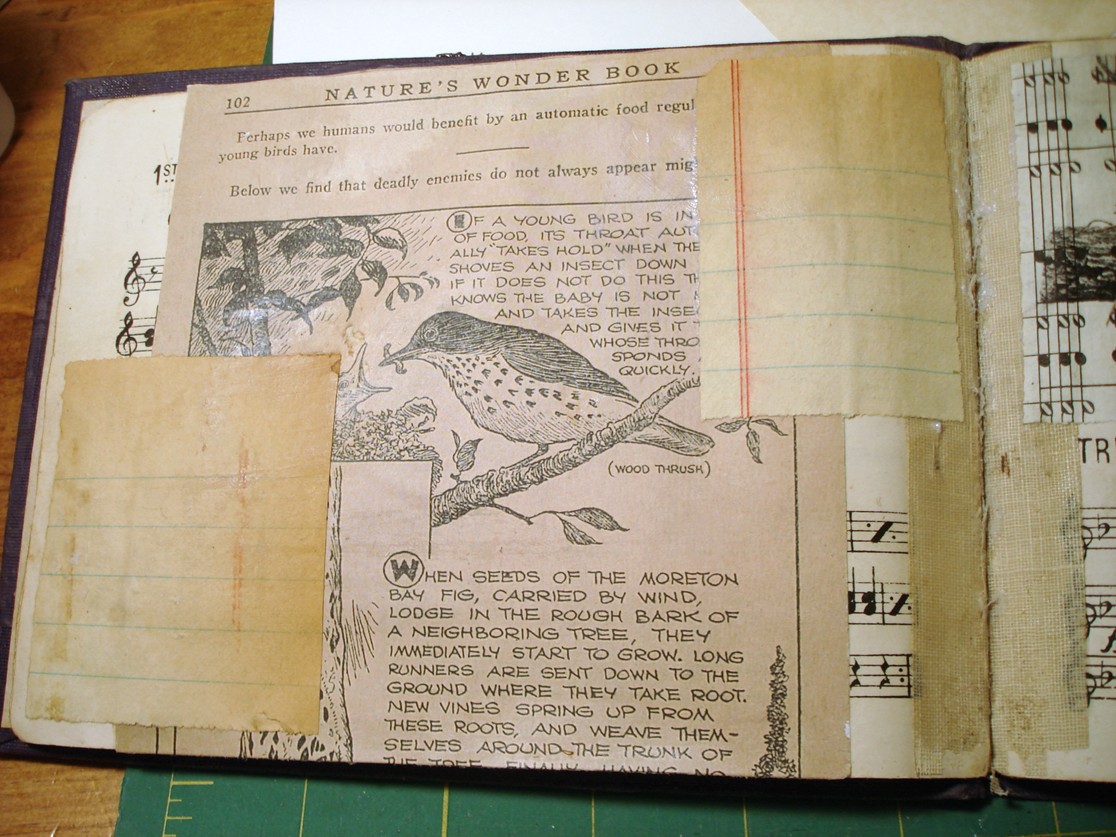 102 NATURE'S WONDER BOOK
Perhaps we humans would benefit by an automatic food regul
young birds have.
Below we find that deadly enemies do not always appear mig
1ST
IF A YOUNG BIRD IS IN
OF FOOD, ITS THROAT AUT
ALLY "TAKES HOLD" WHEN THE
SHOVES AN INSECT DOWN
IF IT DOES NOT DO THIS TH
KNOWS THE BABY IS NOT
AND TAKES THE INSE
AND GIVES IT
WHOSE THRO
SPONDS
QUICKLY.
(WOOD THRUSH)
WHEN SEEDS OF THE MORETON
BAY FIG, CARRIED BY WIND,
LODGE IN THE ROUGH BARK OF
A NEIGHBORING TREE, THEY
IMMEDIATELY START TO GROW. LONG
RUNNERS ARE SENT DOWN TO THE
GROUND WHERE THEY TAKE ROOT.
NEW VINES SPRING UP FROM
THESE ROOTS, AND WEAVE THEM-
SELVES AROUND THE TRUNK OF
THE TREE. FINALLY, HAVING NO
TR